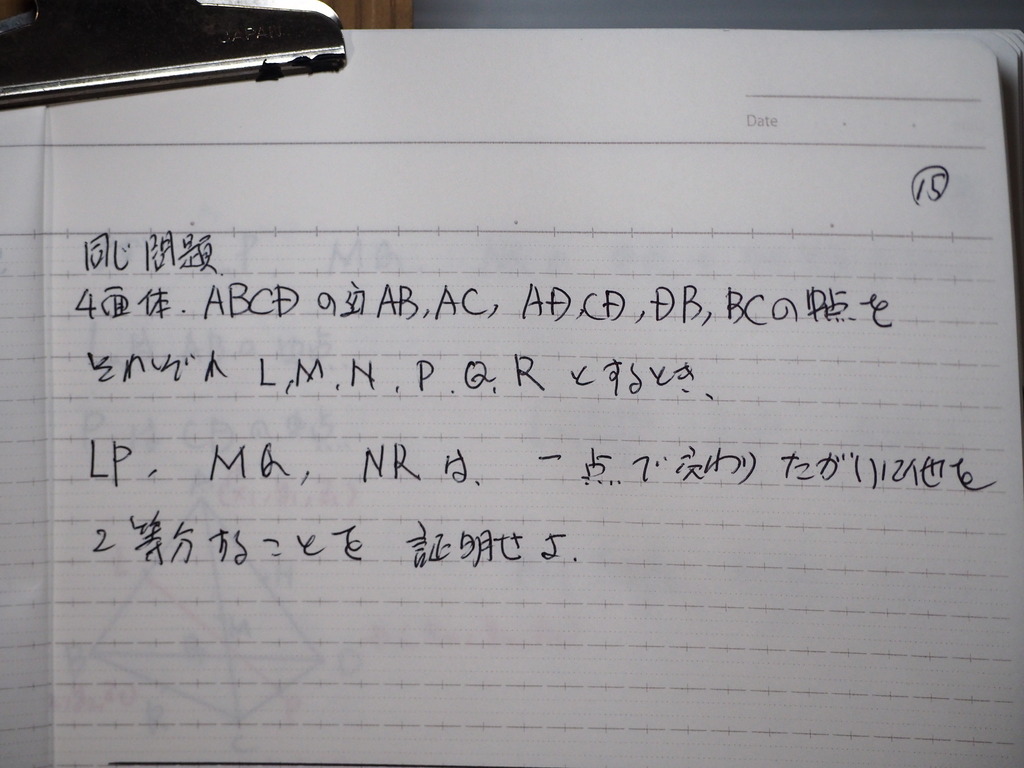 JAPAN
Date
⑮
同じ問題
4面体. ABCDの辺AB, AC, AD, CD, DB, BCの中点を
それぞれ L, M, N, P, Q, R とするとき、
LP, MQ, NRは、一点で交わりたがいに他を
2等分することを 証明せよ.